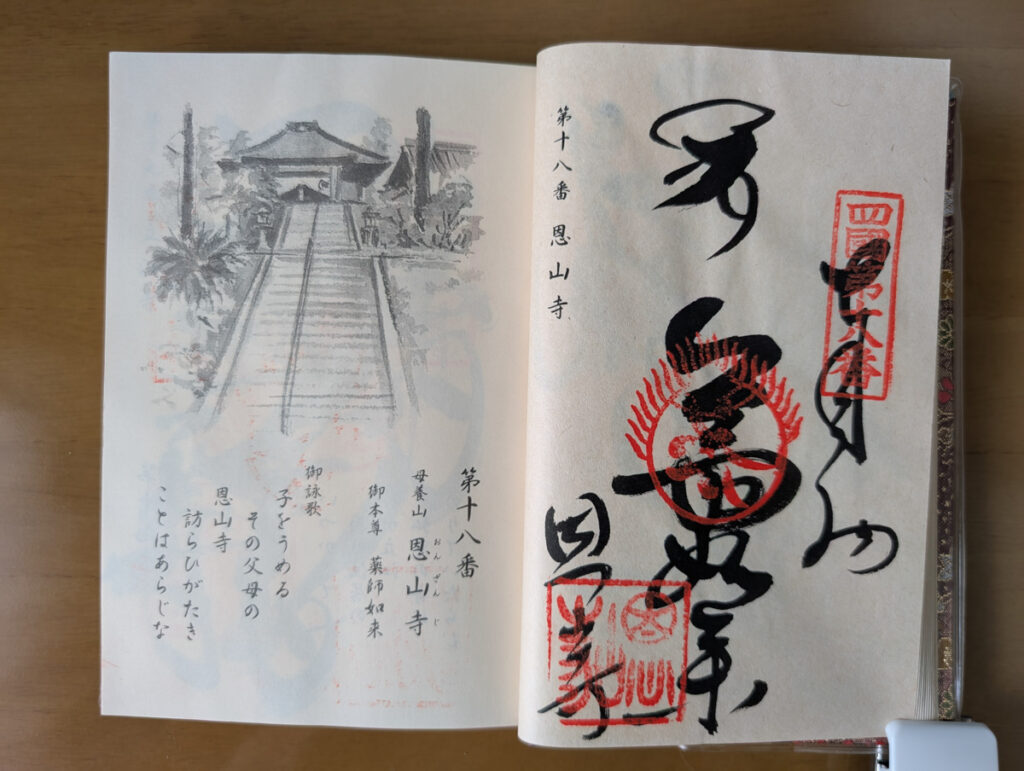 第十八番 恩山寺
四國第十八番
恩山寺
第十八番
母養山 恩山寺
おんざんじ
御本尊 薬師如来
御詠歌
子をうめる
その父母の
恩山寺
訪らひがたき
ことはあらじな